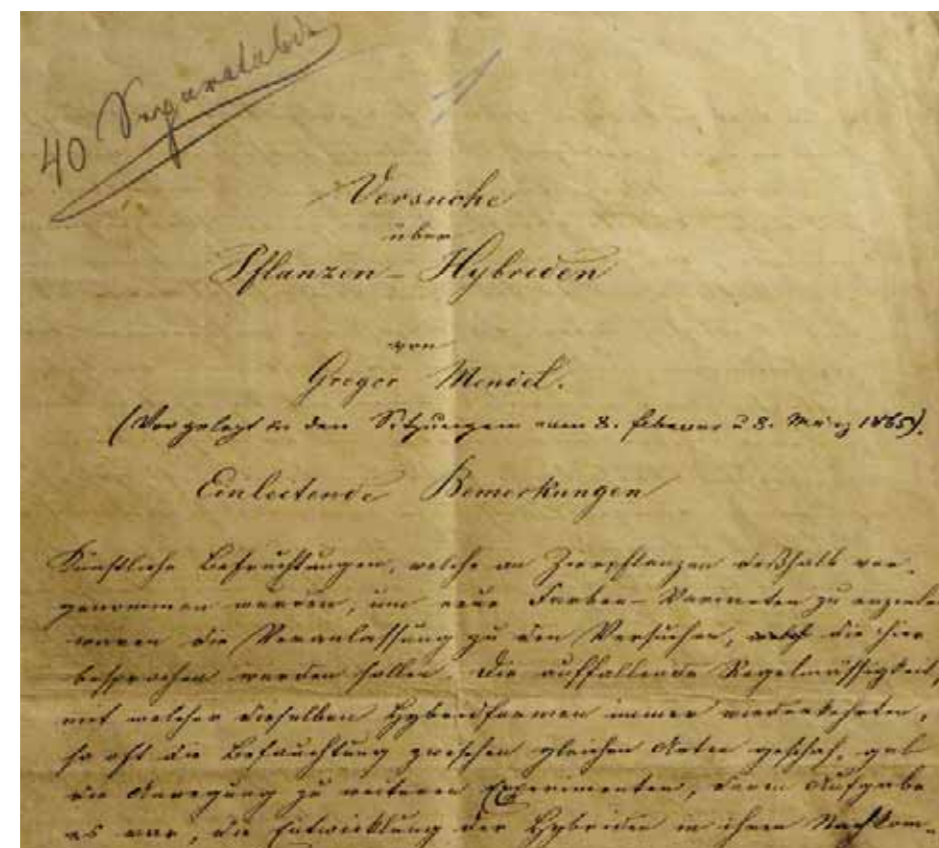 40 Separatabdr.
Versuche
über
Pflanzen-Hybriden
von
Gregor Mendel.
(Vorgelegt in den Sitzungen vom 8. Februar u 8. März 1865).
Einleitende Bemerkungen
Künstliche Befruchtungen, welche an Zierpflanzen deßhalb vor-
genommen wurden, um neue Farben-Varianten zu erzielen
waren die Veranlassung zu den Versuchen, die hier
besprochen werden sollen. Die auffallende Regelmässigkeit,
mit welcher dieselben Hybridformen immer wiederkehrten,
so oft die Befruchtung zwischen gleichen Arten geschah, gab
die Anregung zu weiteren Experimenten, deren Aufgabe
es war, die Entwicklung der Hybriden in ihren Nachkom-